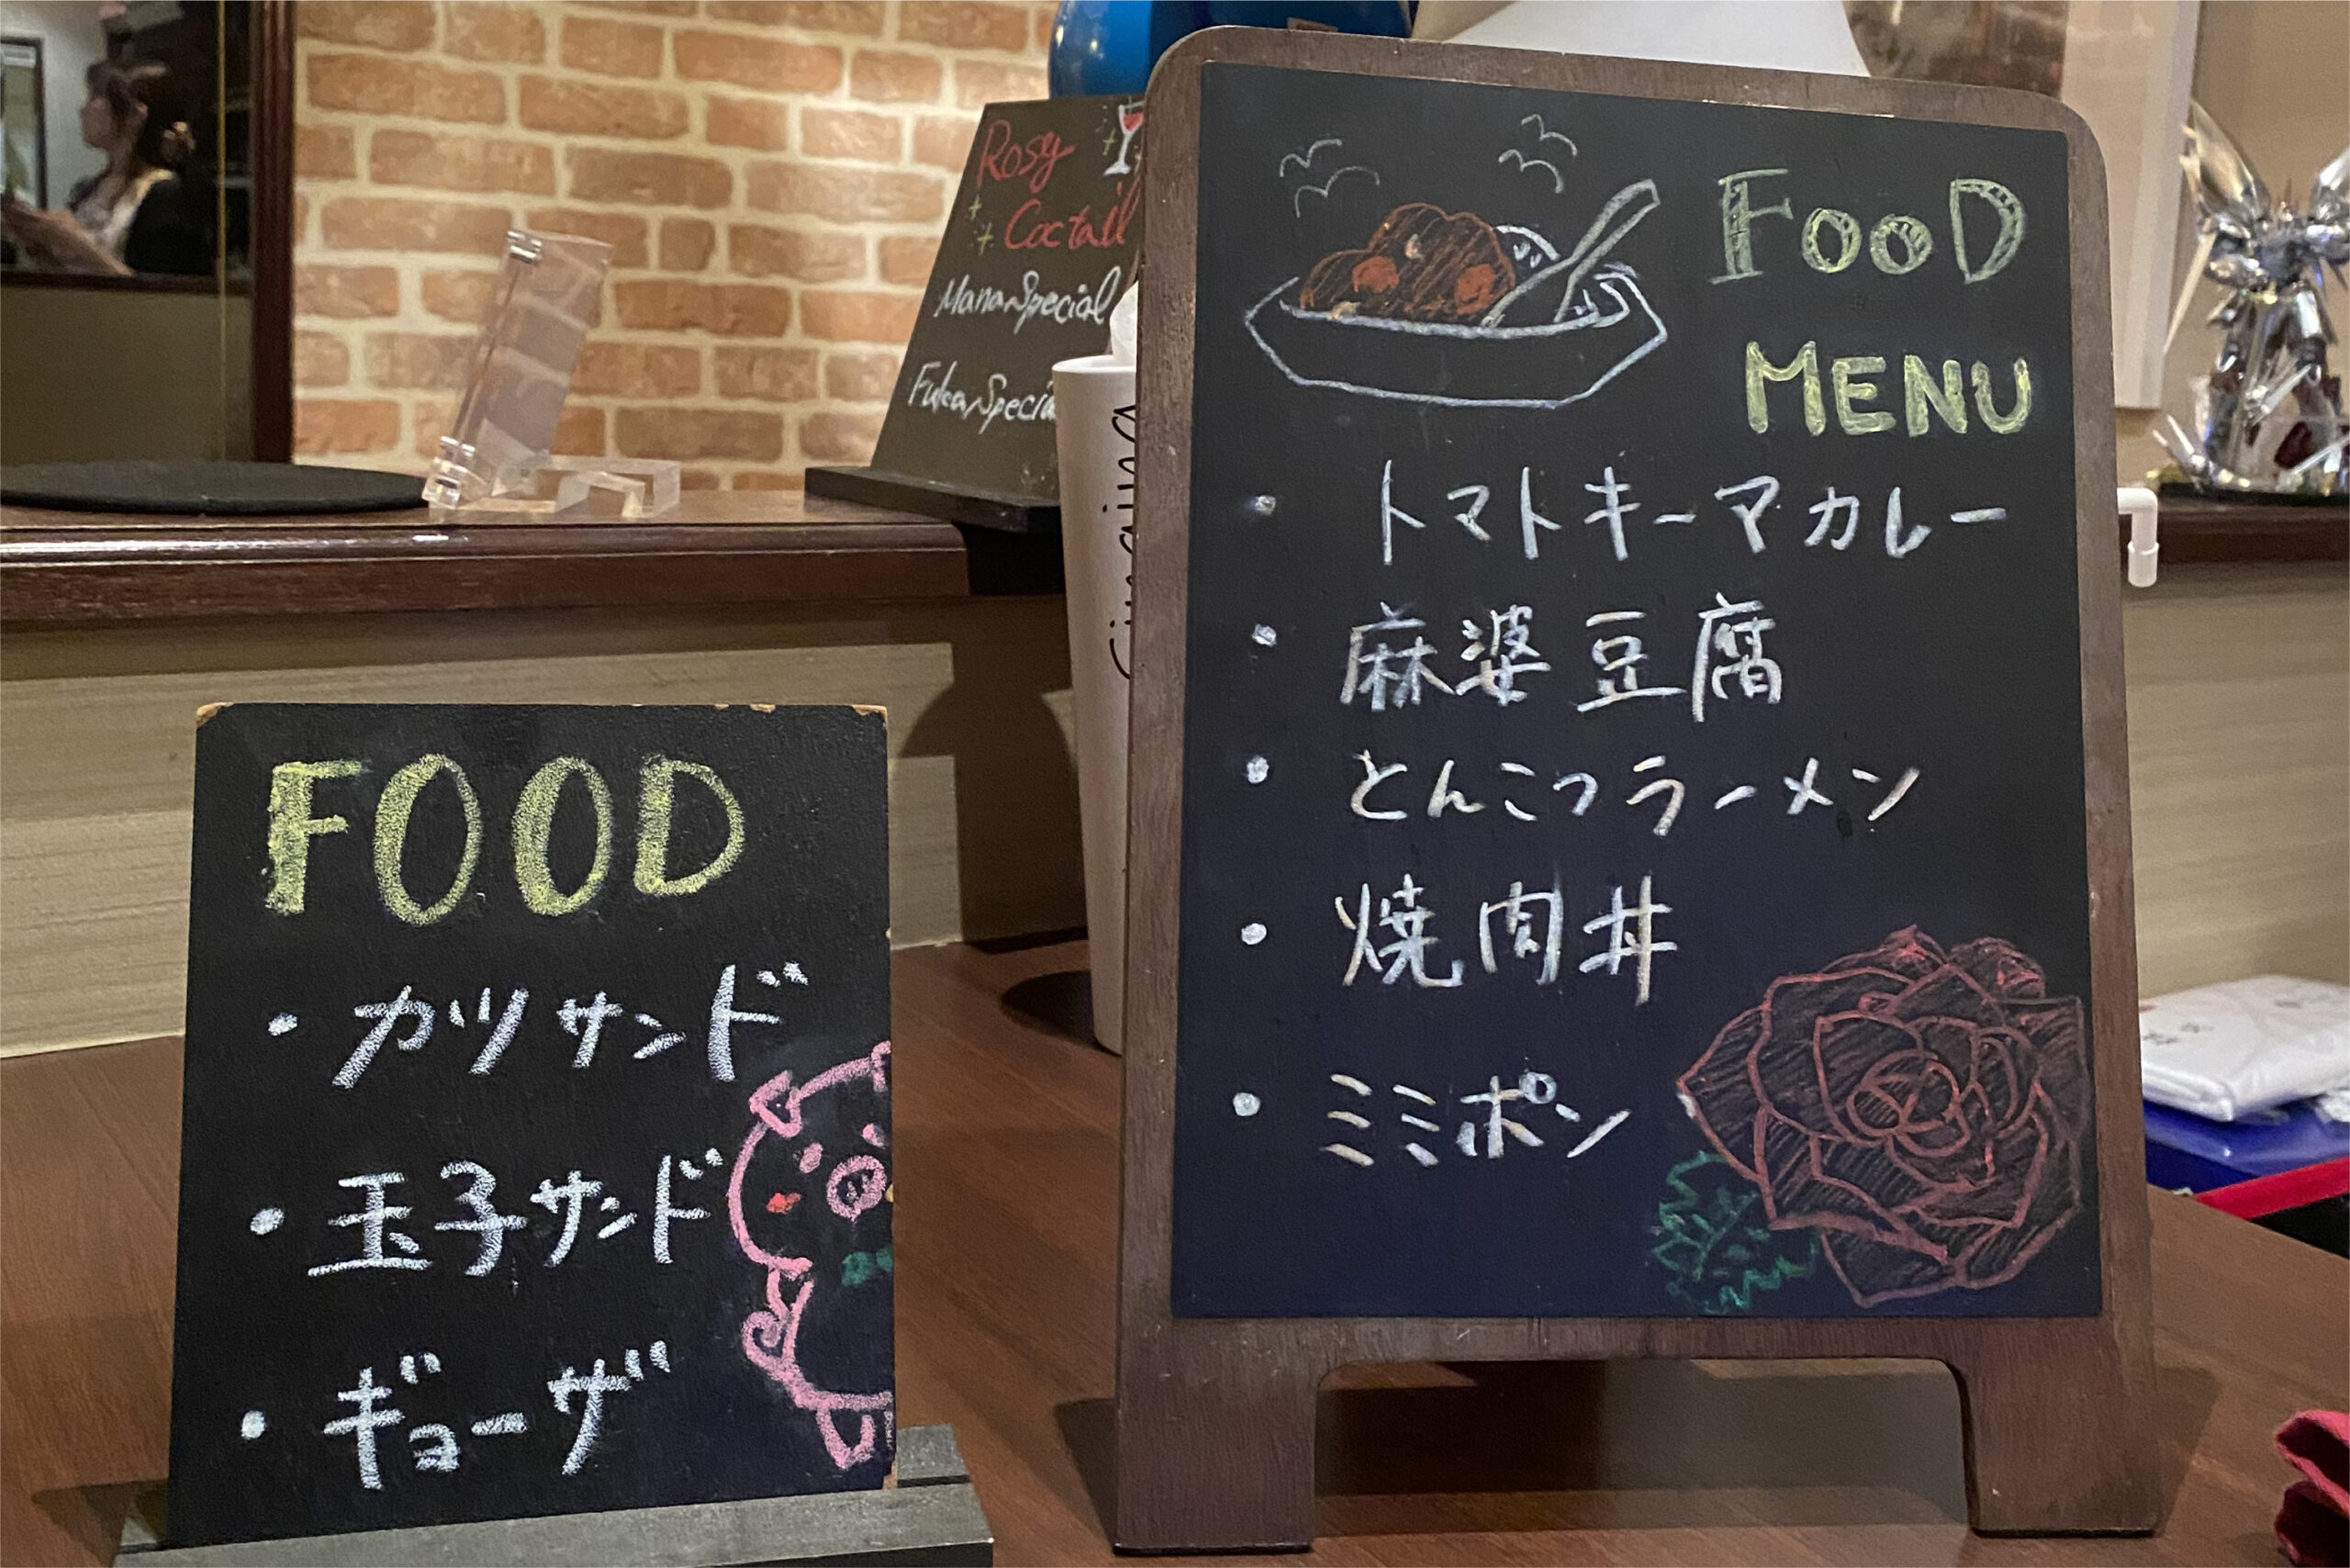 Rosy
Coctail
Mana Special
Fuka Special
Singing
FOOD
MENU
・トマトキーマカレー
・麻婆豆腐
・とんこつラーメン
・焼肉丼
・ミミポン
FOOD
・カツサンド
・玉子サンド
・ギョーザ